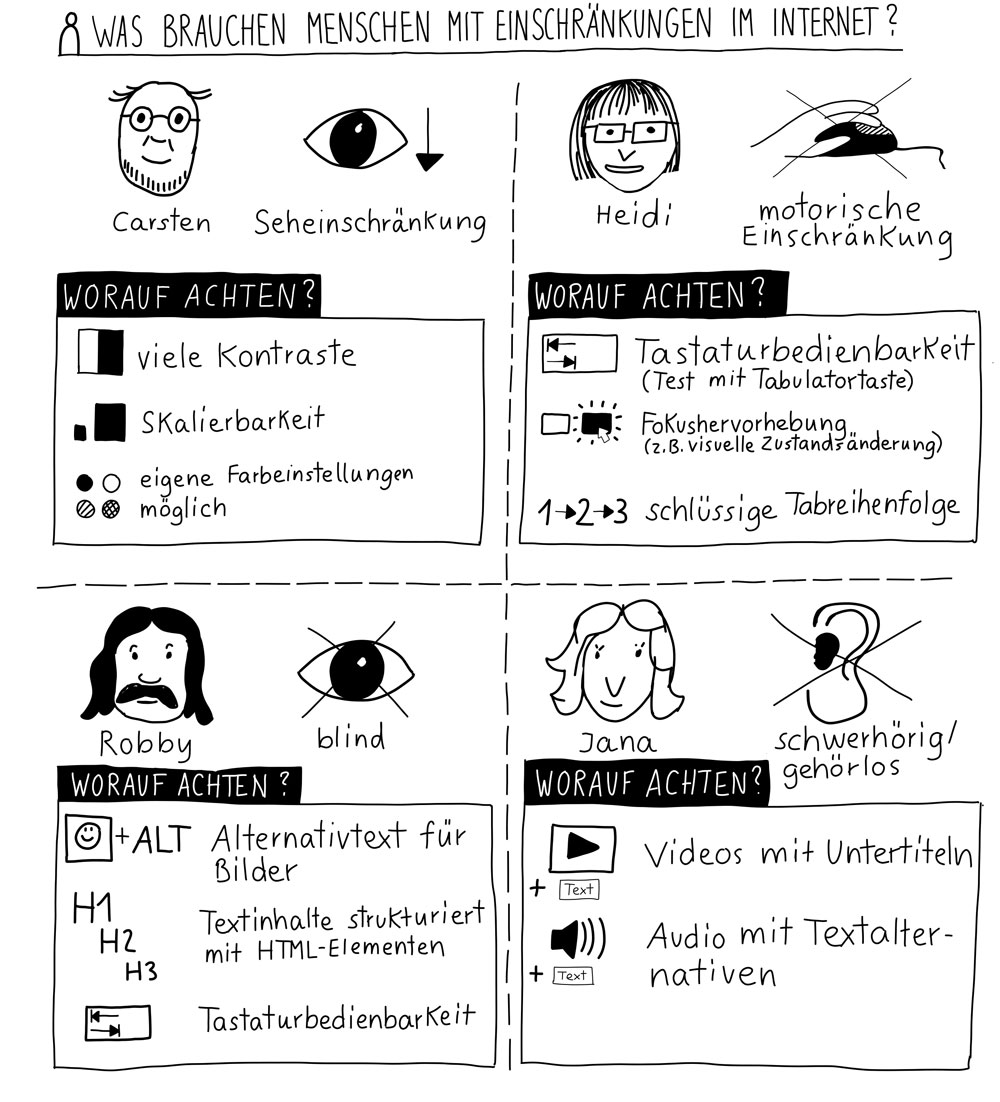 WAS BRAUCHEN MENSCHEN MIT EINSCHRÄNKUNGEN IM INTERNET?
Carsten
Seheinschränkung
WORAUF ACHTEN?
viele Kontraste
Skalierbarkeit
eigene Farbeinstellungen
möglich
Heidi
motorische
Einschränkung
WORAUF ACHTEN?
Tastaturbedienbarkeit
(Test mit Tabulatortaste)
Fokushervorhebung
(z.B. visuelle Zustandsänderung)
1→2→3 schlüssige Tabreihenfolge
Robby
blind
WORAUF ACHTEN?
+ALT Alternativtext für
Bilder
H1
H2
H3
Textinhalte strukturiert
mit HTML-Elementen
Tastaturbedienbarkeit
Jana
schwerhörig/
gehörlos
WORAUF ACHTEN?
Videos mit Untertiteln
+ Text
Audio mit Textalter-
nativen
+ Text